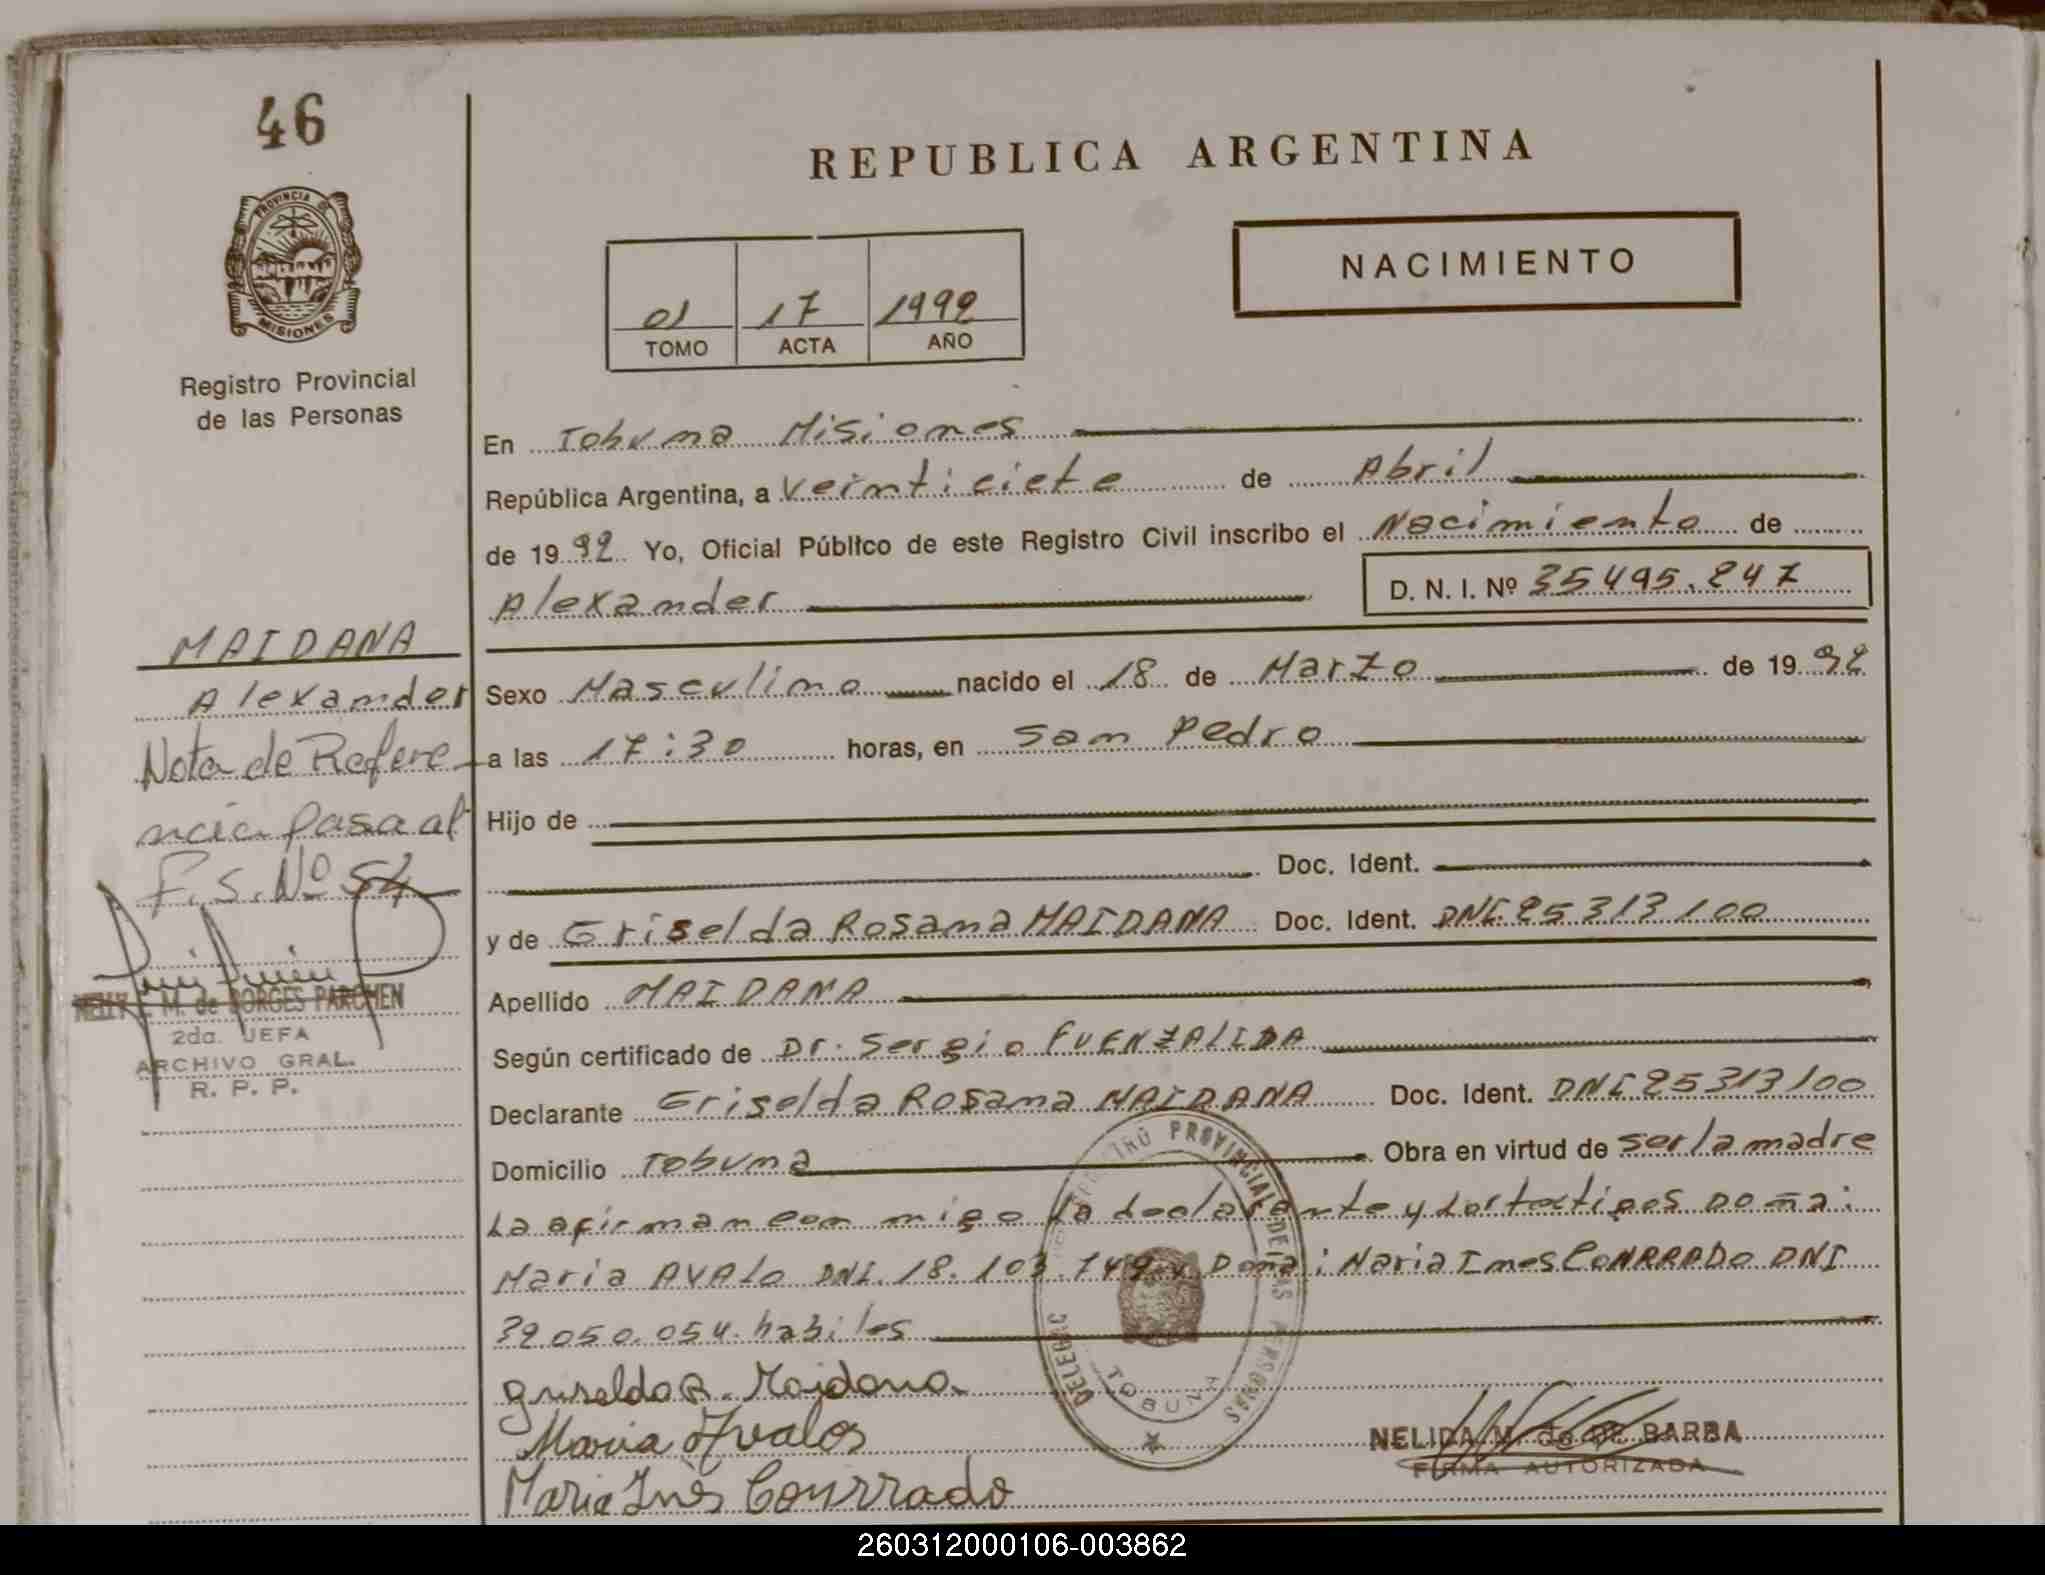 46
REPUBLICA ARGENTINA
PROVINCIA DE
MISIONES
Registro Provincial
de las Personas
01 17 1992
TOMO ACTA AÑO
NACIMIENTO
En Tobuna Misiones
República Argentina, a Veinticiete de Abril
de 19 92 Yo, Oficial Público de este Registro Civil inscribo el Nacimiento de
Alexander D. N. I. Nº 35495.247
MAIDANA
Alexander
Nota de Refere
ncia pasa al
F.S. Nº 54
NELLY E. M. de BORGES PARCHEN
2da. JEFA
ARCHIVO GRAL.
R. P. P.
Sexo Masculino nacido el 18 de Marzo de 19 92
a las 17:30 horas, en San Pedro
Hijo de
Doc. Ident.
y de Griselda Rosana MAIDANA Doc. Ident. DNI.25313100
Apellido MAIDANA
Según certificado de Dr. Sergio FUENZALIDA
Declarante Griselda Rosana MAIDANA Doc. Ident. DNI 25313100
Domicilio Tobuna Obra en virtud de ser la madre
La afirman con migo la declarante y los testigos Doña:
Maria AVALO DNI. 18.103.749 y Doña: Maria Ines CONRRADO DNI
32.050.054. habiles
Griselda R. Maidana.
Maria Avalos
Maria Inés Conrrado
REGISTRO PROVINCIAL DE LAS PERSONAS
TOBUNA
NELIDA M. de DE BARBA
FIRMA AUTORIZADA
260312000106-003862